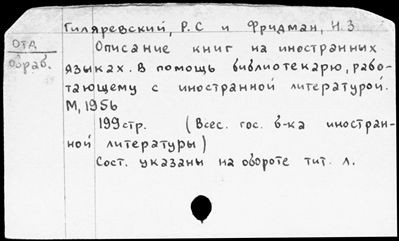 Гиляревский, Р.С и Фридман, Н.З
ОТД
обраб.
Описание книг на иностранных
языках. В помощь библиотекарю, рабо-
тающему с иностранной литературой.
М, 1956
199 стр. (Всес. гос. б-ка иностран-
ной литературы)
Сост. указаны на обороте тит. л.